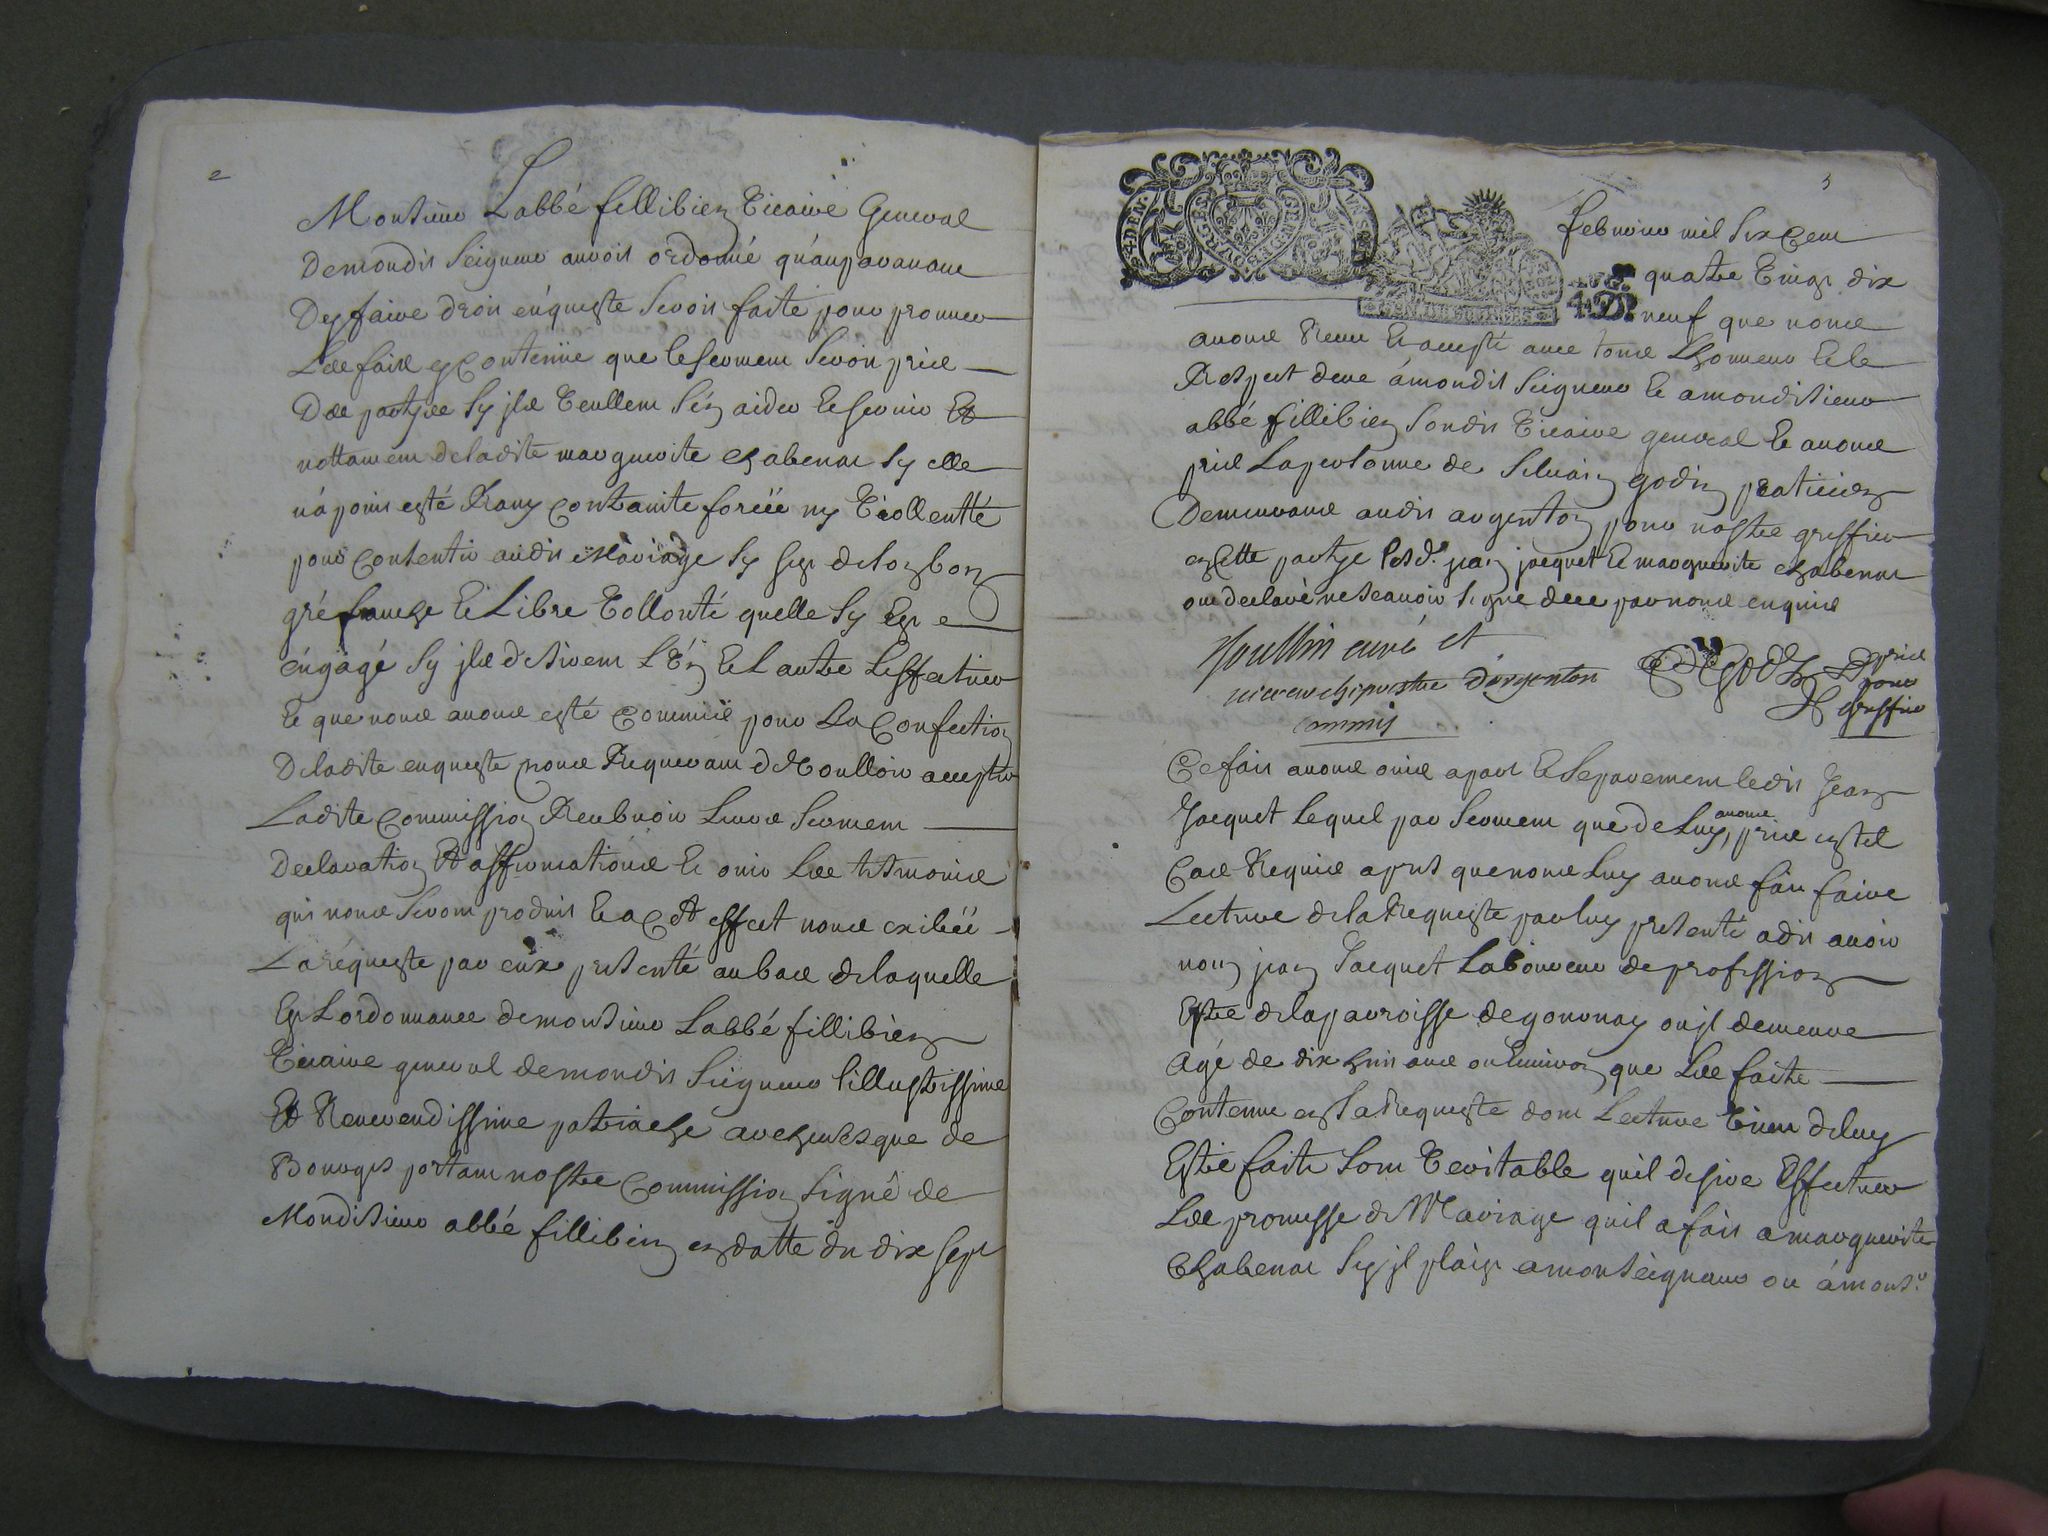 2
Monsieur Labbé fillibien Vicaire General
de mondit Seigneur auroit ordonné qu'auparauant
dy faire droit enqueste seroit faite pour prouuer
Les faits y contenüe que le serment seroit pris
Des partyes sy jls veullent s'en aider et seruir Et
nottament de ladite marguerite chabenat sy elle
n'a point esté Rauy contrainte forcéé ny viollentté
pour consentir audit Mariage sy cest de son bon
gré franche et Libre vollonté quelle sy est
engagé sy jls desirent L'vn et L'autre L'effectuer
et que nous auons esté commis pour La Confection
De ladite enqueste nous Requerant de voulloir accepter
Ladite commission Receuoir Leurs serment
Declaration Et affirmations et ouir Les tesmoins
qui nous seront produit et a cet effect nous exibéé
La requeste par eux presenté au bas de laquelle
Est Lordonnance de monsieur Labbé fillibien
Vicaire general de mondit Seigneur lillustrissime
Et Reuerendissime patriache archeuesque de
Bourges portant nostre Commission signé de
Mondit sieur abbé fillibien en datte du dix sept
3
GEN DE BOURGES
februier mil six cent
quatre vingt dix
neuf que nous
auons Receu et accepté auec tous Lhonneur et le
Respect deue a mondit Seigneur et a mondit sieur
abbé fillibien sondit vicaire general et auons
pris La personne de Siluain godin praticien
Demeurant audit argenton pour nostre greffier
en cette partye lesd. jean jacquet et marguerite chabenat
ont declaré ne scauoir signé de ce par nous enquis
curé et
vicaire archiprestre d'argenton
commis
pris
pour
greffier
Ce fait auons ouis apart et separement ledit Jean
Jacquet lequel par serment que de Luy auons pris en tel
Cas Requis apres que nous Luy auons fait faire
Lecture de la Requeste par luy presenté a dit auoir
nom jean Jacquet Laboureur de profession
Estre de la parroisse de gournay ou jl demeure
Agé de dix huit ans ou enuiron que Les faits
Contenue en la Requeste dont Lecture vient de luy
Estre faite sont veritable quil desire effectuer
Les promesse de Mariage quil a fait a marguerite
Chabenat sy jl plaist a monseigneur ou a monsr